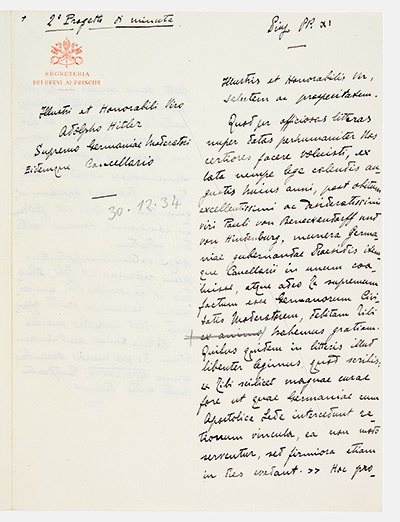 2º Progetto di minuta
SEGRETERIA
DEI BREVI AI PRINCIPI
Illustri et Honorabili Viro
Adolpho Hitler
Supremo Germaniae Moderatori
Eidemque Cancellario
30.12.34
Pius PP. XI
Illustris et Honorabilis Vir,
salutem ac prosperitatem.
Quod per officiosas literas
nuper datas perhumaniter Nos
certiores facere voluisti, ex
lata nempe lege calendis au
gustis huius anni, post obitum
excellentissimi ac desideratissimi
viri Pauli von Beneckendorff und
von Hindenburg, munera Germa
niae gubernandae Praesidis idem
que Cancellarii in unum coa-
luisse, atque adeo te supremum
factum esse Germanorum Civi
tatis Moderatorem, debitam tibi
ex animo habemus gratiam.
Quibus quidem in litteris illud
libenter legimus, quod scribis:
tibi scilicet magnae curae
fore ut quae Germaniae cum
Apostolica Sede intercedunt ra
tionum vincula, ea non modo
serventur, sed firmiora etiam
in dies evadant. >> Hoc pro-